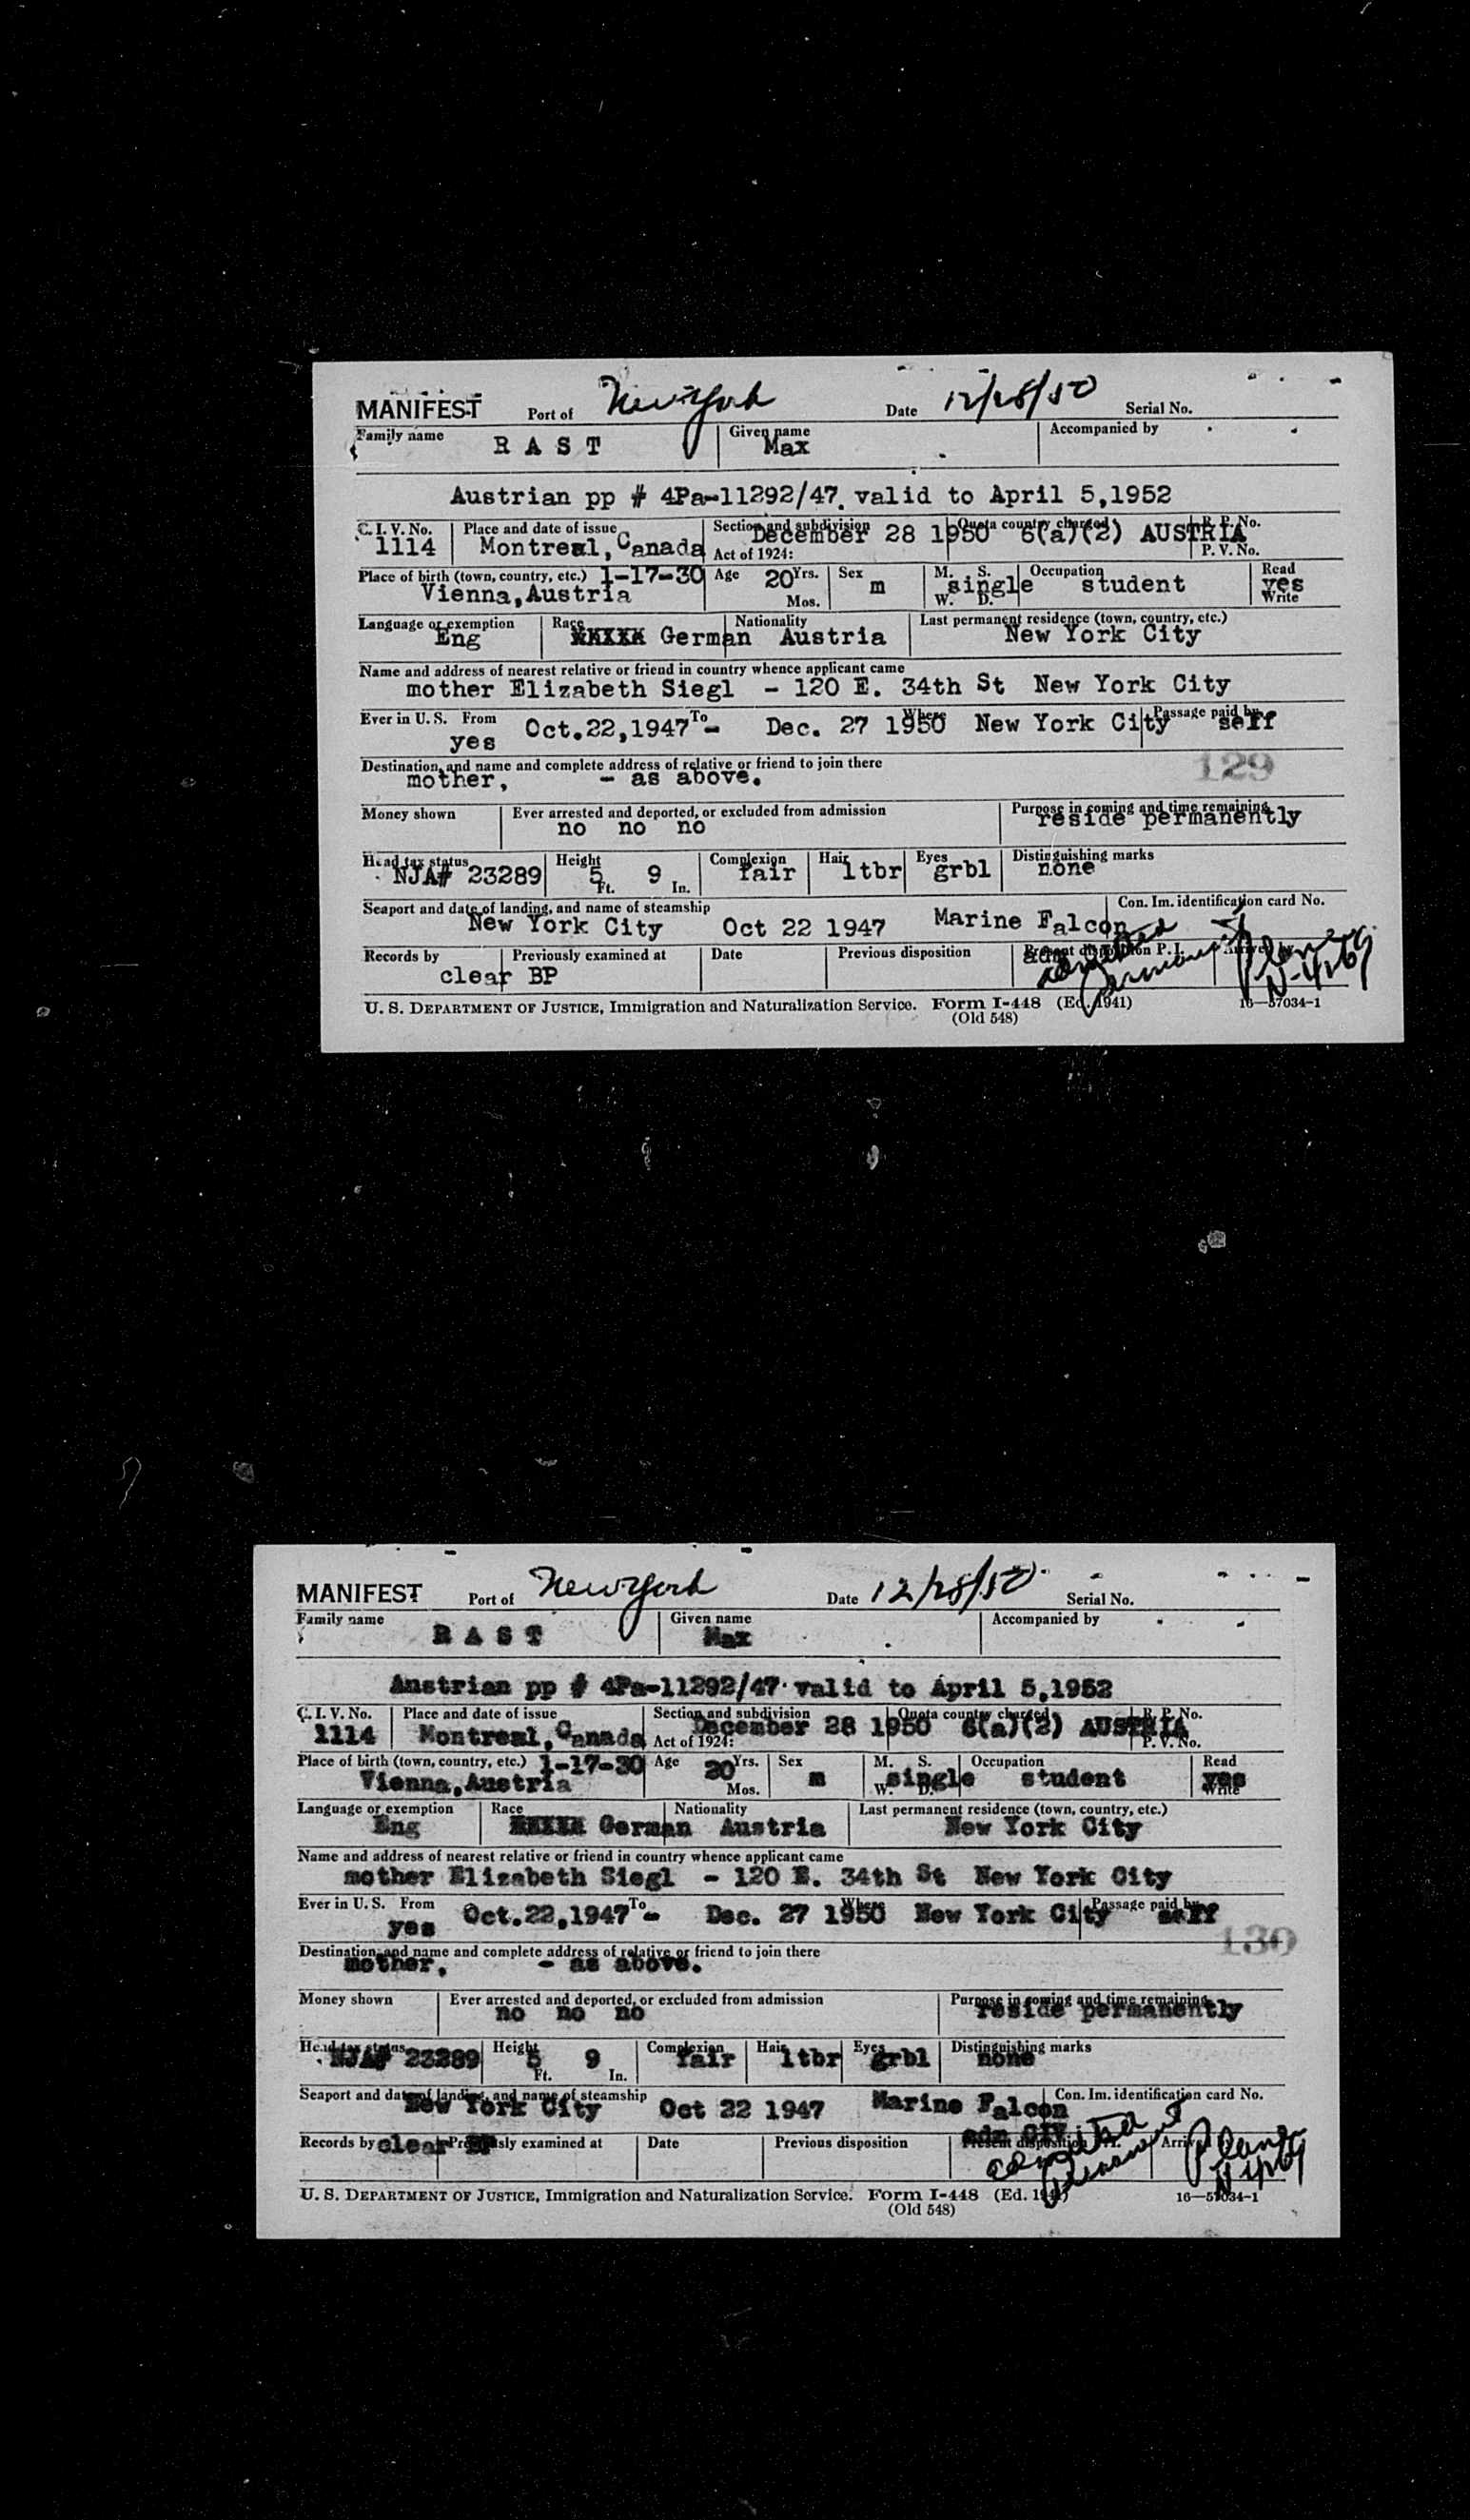 MANIFEST Port of New York Date 12/28/50 Serial No.
Family name RAST Given name Max Accompanied by
Austrian pp # 4Pa-11292/47. valid to April 5,1952
C. I. V. No. Place and date of issue Section and subdivision Quota country charged R. P. No.
1114 Montreal, Canada December 28 1950 6(a)(2) AUSTRIA
Act of 1924: P. V. No.
Place of birth (town, country, etc.) 1-17-30 Age 20 Yrs. Sex M. S. Occupation Read
Vienna, Austria m single student yes
Mos. W. D. Write
Language or exemption Race Nationality Last permanent residence (town, country, etc.)
Eng German Austria New York City
Name and address of nearest relative or friend in country whence applicant came
mother Elizabeth Siegl - 120 E. 34th St New York City
Ever in U. S. From To Where Passage paid by
yes Oct.22,1947 - Dec. 27 1950 New York City self
Destination, and name and complete address of relative or friend to join there
mother, - as above. 129
Money shown Ever arrested and deported, or excluded from admission Purpose in coming and time remaining
no no no reside permanently
Head tax status Height Complexion Hair Eyes Distinguishing marks
NJA# 23289 5 9 fair ltbr grbl none
Ft. In.
Seaport and date of landing, and name of steamship Con. Im. identification card No.
New York City Oct 22 1947 Marine Falcon
Records by Previously examined at Date Previous disposition Present disposition P. I. Arrived by
clear BP adm admitted permanent Plane
U. S. DEPARTMENT OF JUSTICE, Immigration and Naturalization Service. Form I-448 (Ed. 1941) 16—57034-1
(Old 548)
MANIFEST Port of New York Date 12/28/50 Serial No.
Family name RAST Given name Max Accompanied by
Austrian pp # 4Pa-11292/47. valid to April 5,1952
C. I. V. No. Place and date of issue Section and subdivision Quota country charged R. P. No.
1114 Montreal, Canada December 28 1950 6(a)(2) AUSTRIA
Act of 1924: P. V. No.
Place of birth (town, country, etc.) 1-17-30 Age 20 Yrs. Sex M. S. Occupation Read
Vienna, Austria m single student yes
Mos. W. D. Write
Language or exemption Race Nationality Last permanent residence (town, country, etc.)
Eng German Austria New York City
Name and address of nearest relative or friend in country whence applicant came
mother Elizabeth Siegl - 120 E. 34th St New York City
Ever in U. S. From To Where Passage paid by
yes Oct.22,1947 - Dec. 27 1950 New York City self
Destination, and name and complete address of relative or friend to join there 130
mother, - as above.
Money shown Ever arrested and deported, or excluded from admission Purpose in coming and time remaining
no no no reside permanently
Head tax status Height Complexion Hair Eyes Distinguishing marks
NJA# 23289 5 9 fair ltbr grbl none
Ft. In.
Seaport and date of landing, and name of steamship Con. Im. identification card No.
New York City Oct 22 1947 Marine Falcon
adm CIV
Records by clear BP Previously examined at Date Previous disposition Present disposition P. I. Arrived
admitted permanent Plane
U. S. DEPARTMENT OF JUSTICE, Immigration and Naturalization Service. Form I-448 (Ed. 1941) 16—57034-1
(Old 548)